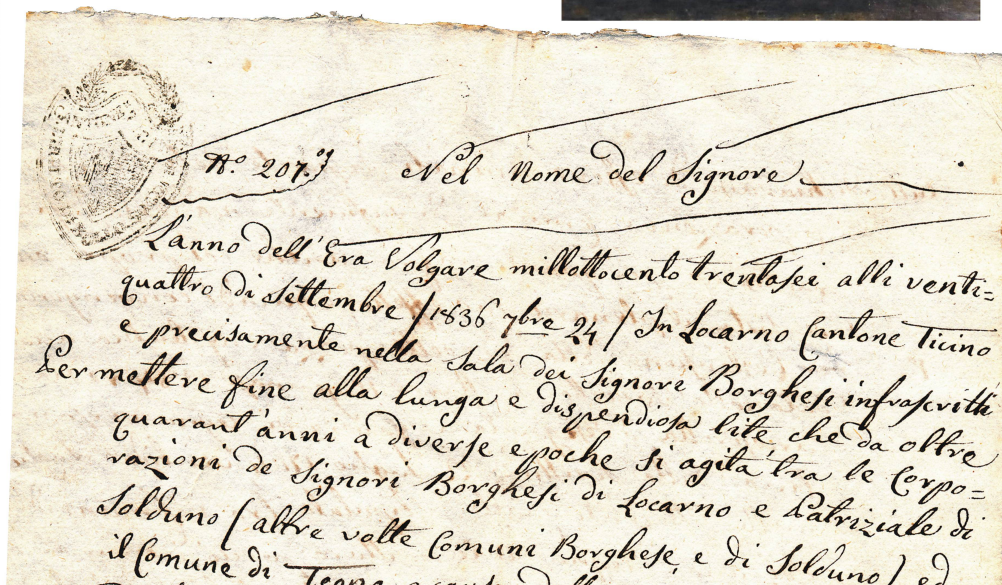 N.° 207.
Nel Nome del Signore
L'anno dell'Era Volgare millottocento trentasei alli venti=
quattro di Settembre / 1836 7bre 24 / In Locarno Cantone Ticino
e precisamente nella Sala dei Signori Borghesi infrascritti
Per mettere fine alla lunga e dispendiosa lite che da oltre
quarant'anni a diverse epoche si agita tra le Corpo=
razioni de Signori Borghesi di Locarno e Patriziale di
Solduno (altre volte Comuni Borghese, e di Solduno) ed
il Comune di Tegna